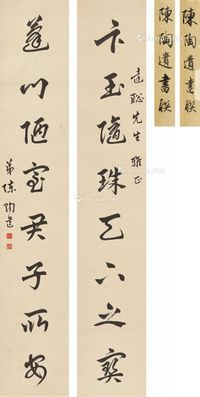 陳陶遺書聯
陳陶遺書聯
聰先生雅正
卞玉隨珠天下之寶
蓬門陋室君子所安
弟陳陶遺